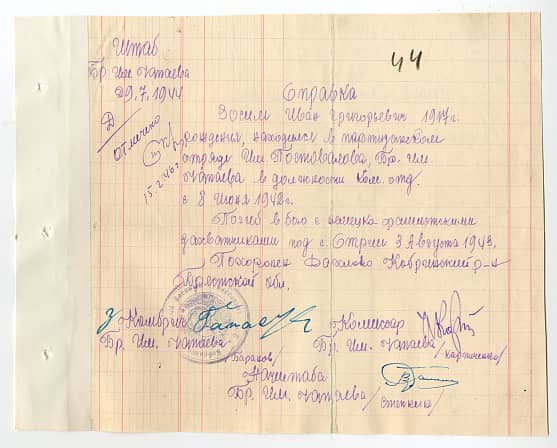 44
Штаб
Бр. им. Чапаева
29.7.1944
Д
отмечено
15.2.46г.
Справка
Зосим Иван Григорьевич 1917г.
рождения, находился в партизанском
отряде Им. Постовалова, Бр. им.
Чапаева в должности ком. отд.
с 8 июня 1942г.
Погиб в бою с немецко-фашистскими
захватчиками под с. 3 Августа 1943.
Похоронен Кобринский р-н
Брестской обл.
Комбриг
Бр. Им. Чапаева
Комиссар
Бр. Им. Чапаева
Начштаба
Бр. Им. Чапаева